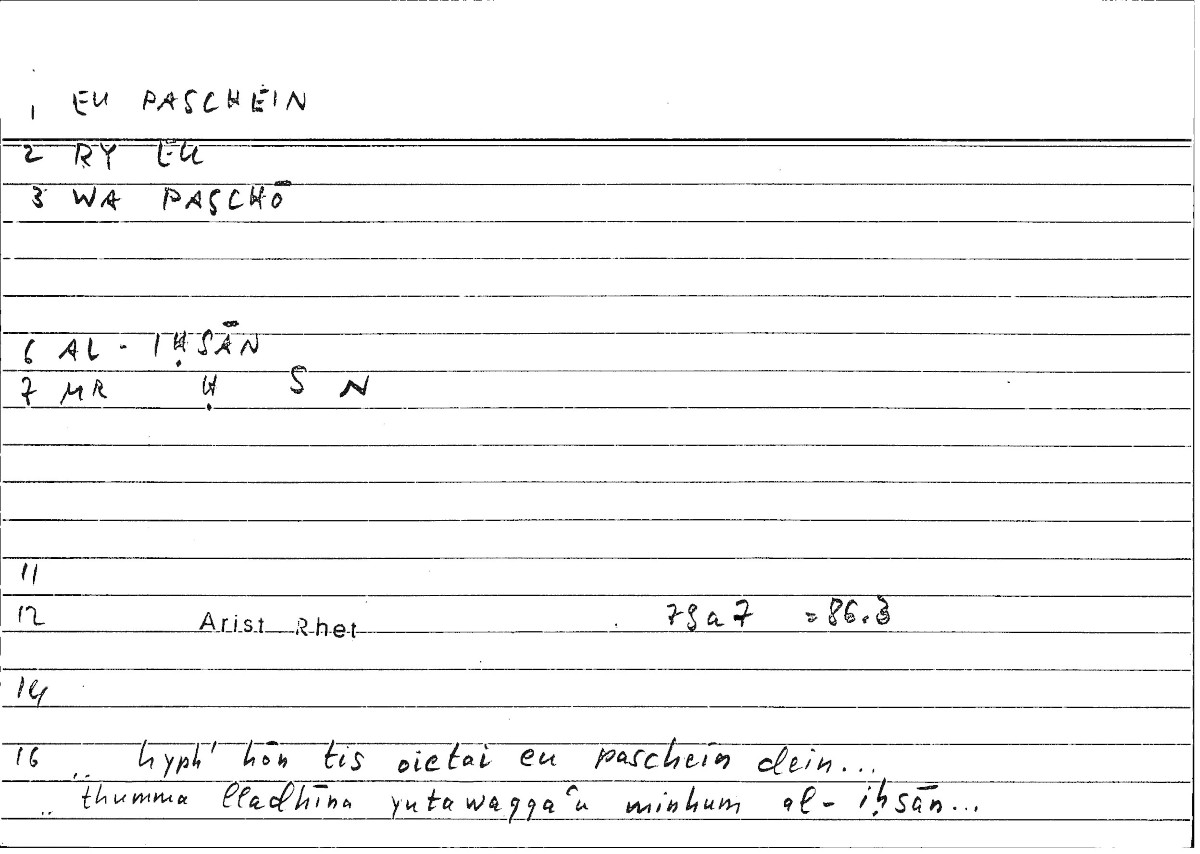 1 EU PASCHEIN
2 RY EU
3 WA PASCHŌ
6 AL - IḤSĀN
7 MR Ḥ S N
11
12 Arist Rhet 79a7 = 86.3
14
16 .. hyph' hōn tis oietai eu paschein dein...
.. thumma lladhīna yutawaqqaʿu minhum al-iḥsān...